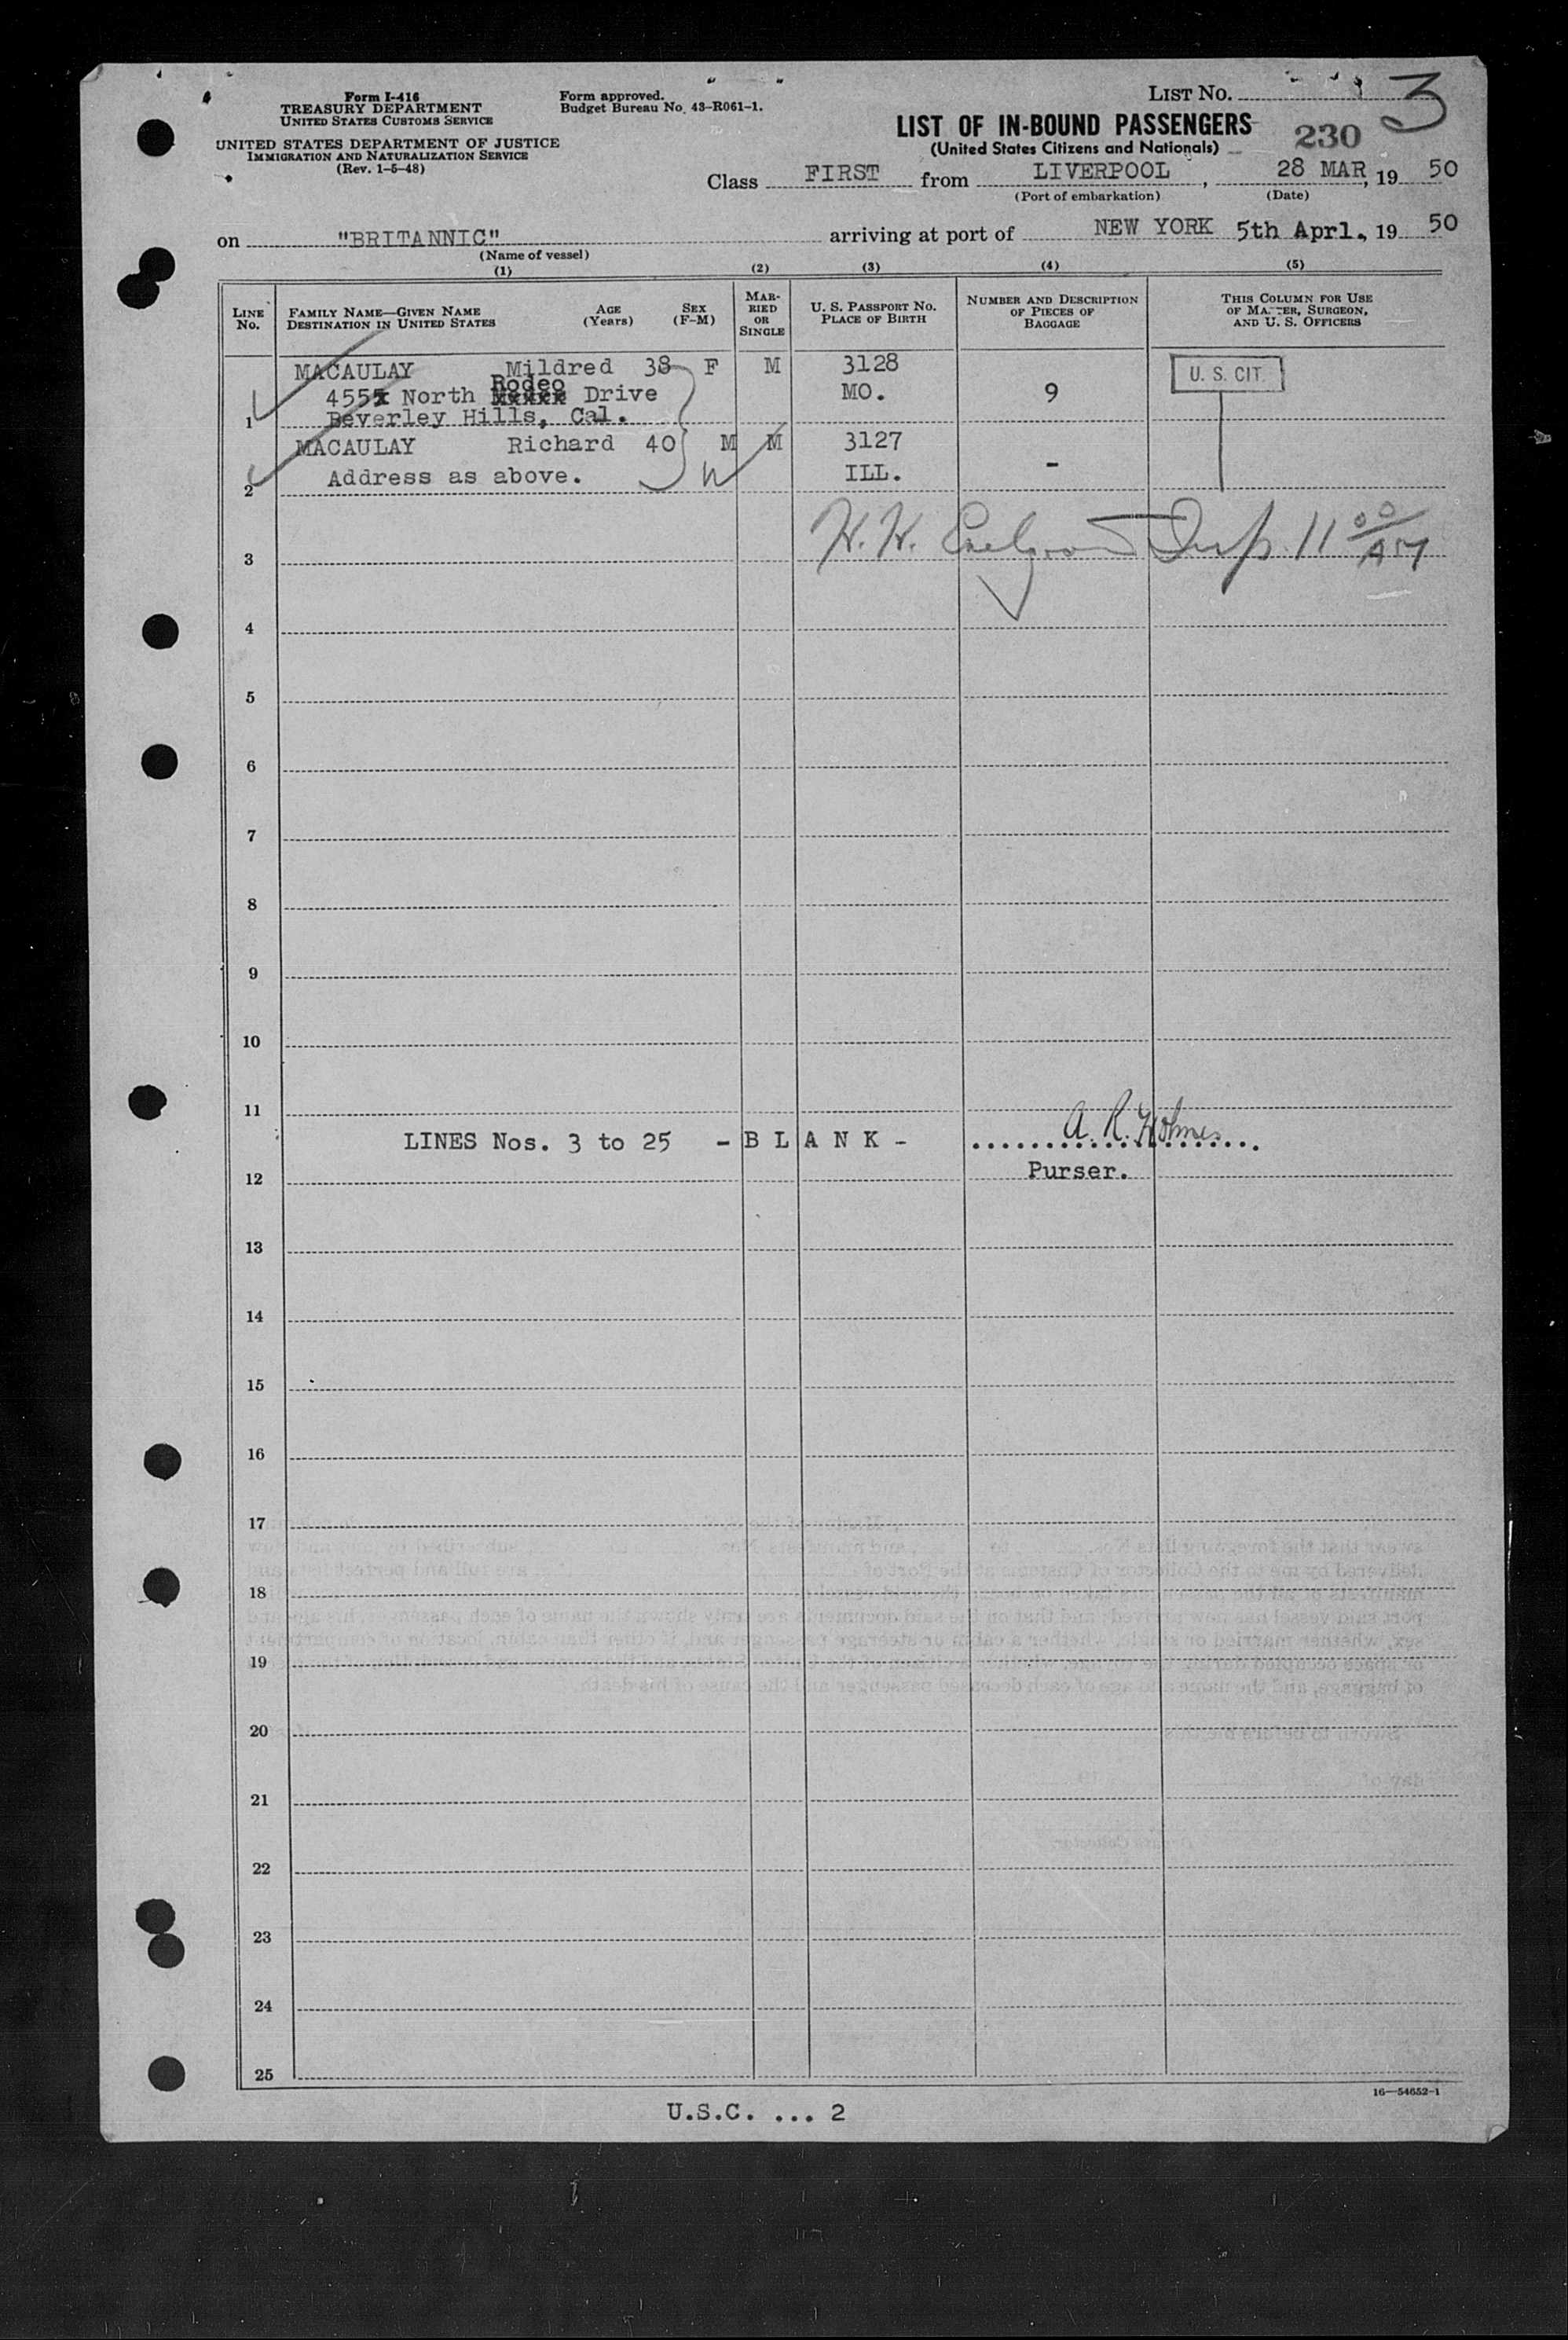 Form I-416
TREASURY DEPARTMENT
UNITED STATES CUSTOMS SERVICE
UNITED STATES DEPARTMENT OF JUSTICE
IMMIGRATION AND NATURALIZATION SERVICE
(Rev. 1-5-48)
Form approved.
Budget Bureau No. 43-R061-1.
LIST NO. 3
LIST OF IN-BOUND PASSENGERS
(United States Citizens and Nationals)
230
Class FIRST from LIVERPOOL, 28 MAR, 19 50
(Port of embarkation) (Date)
on "BRITANNIC" arriving at port of NEW YORK 5th Aprl., 19 50
(Name of vessel)
(1) (2) (3) (4) (5)
LINE No. FAMILY NAME—GIVEN NAME DESTINATION IN UNITED STATES AGE (Years) SEX (F-M) MARRIED OR SINGLE U. S. PASSPORT NO. PLACE OF BIRTH NUMBER AND DESCRIPTION OF PIECES OF BAGGAGE THIS COLUMN FOR USE OF MASTER, SURGEON, AND U. S. OFFICERS
MACAULAY Mildred 38 F M 3128 U. S. CIT.
455 North Rodeo Drive MO. 9
1 Beverley Hills, Cal.
MACAULAY Richard 40 M M 3127
Address as above. W ILL. -
2
3 H. H. Insp. 11 00 AM
4
5
6
7
8
9
10
11
LINES Nos. 3 to 25 - B L A N K - A. R. Holmes
12 Purser.
13
14
15
16
17
18
19
20
21
22
23
24
25
16—54652-1
U.S.C. ... 2